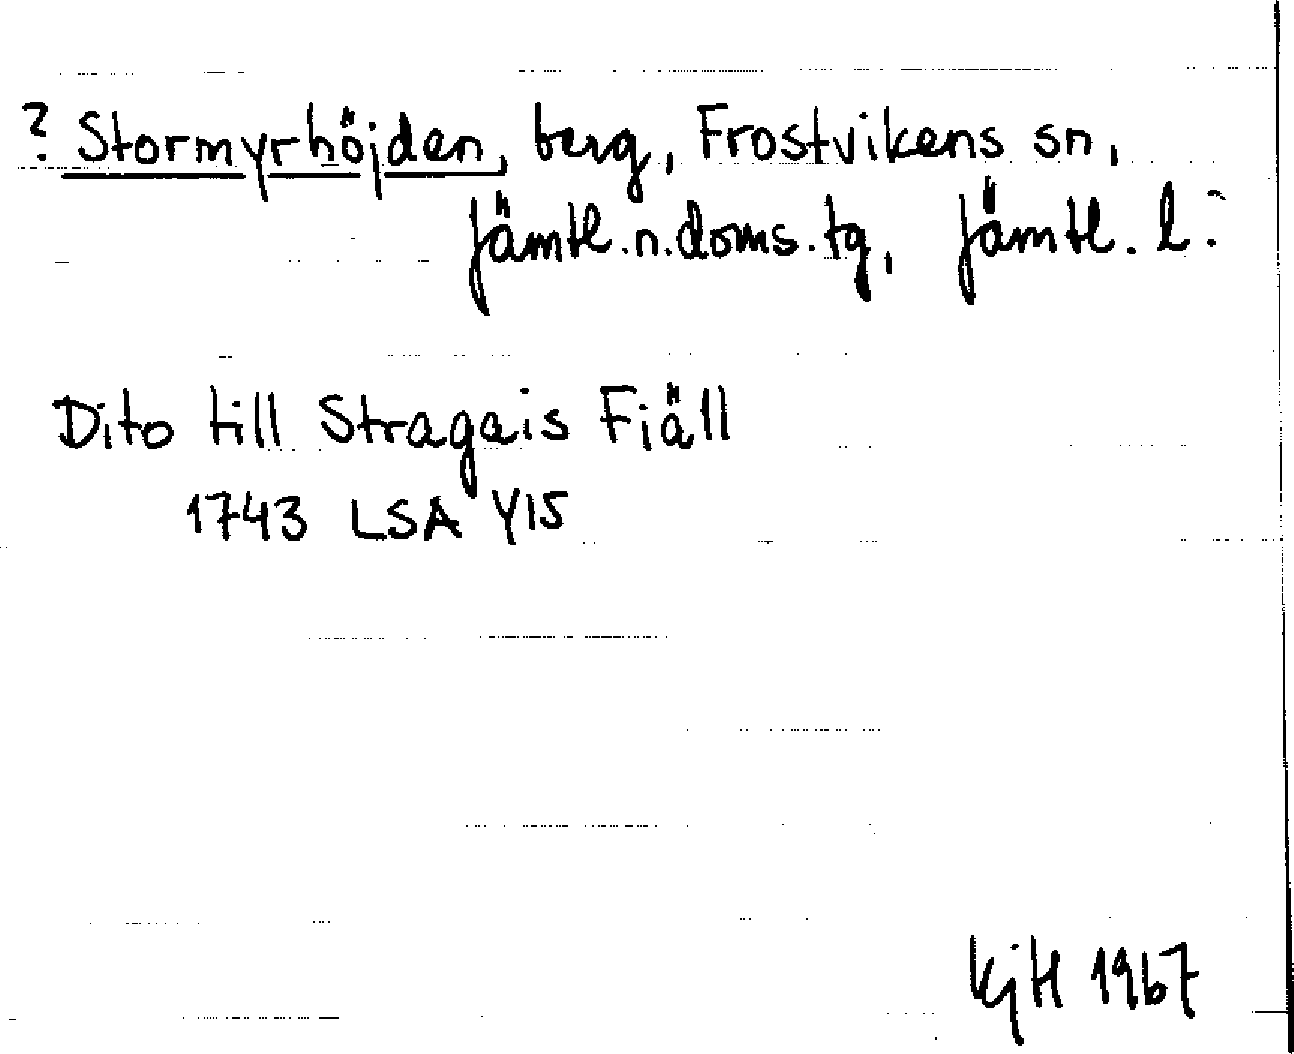 ? Stormyrhöjden, berg, Frostvikens sn,
Jämtl.n.doms.tg, Jämtl. l.
Dito till Stragais Fiäll
1743 LSA Y15
KjH 1967